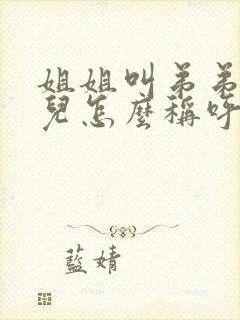 姐姐叫弟弟
兒怎麼稱呼
藍婧